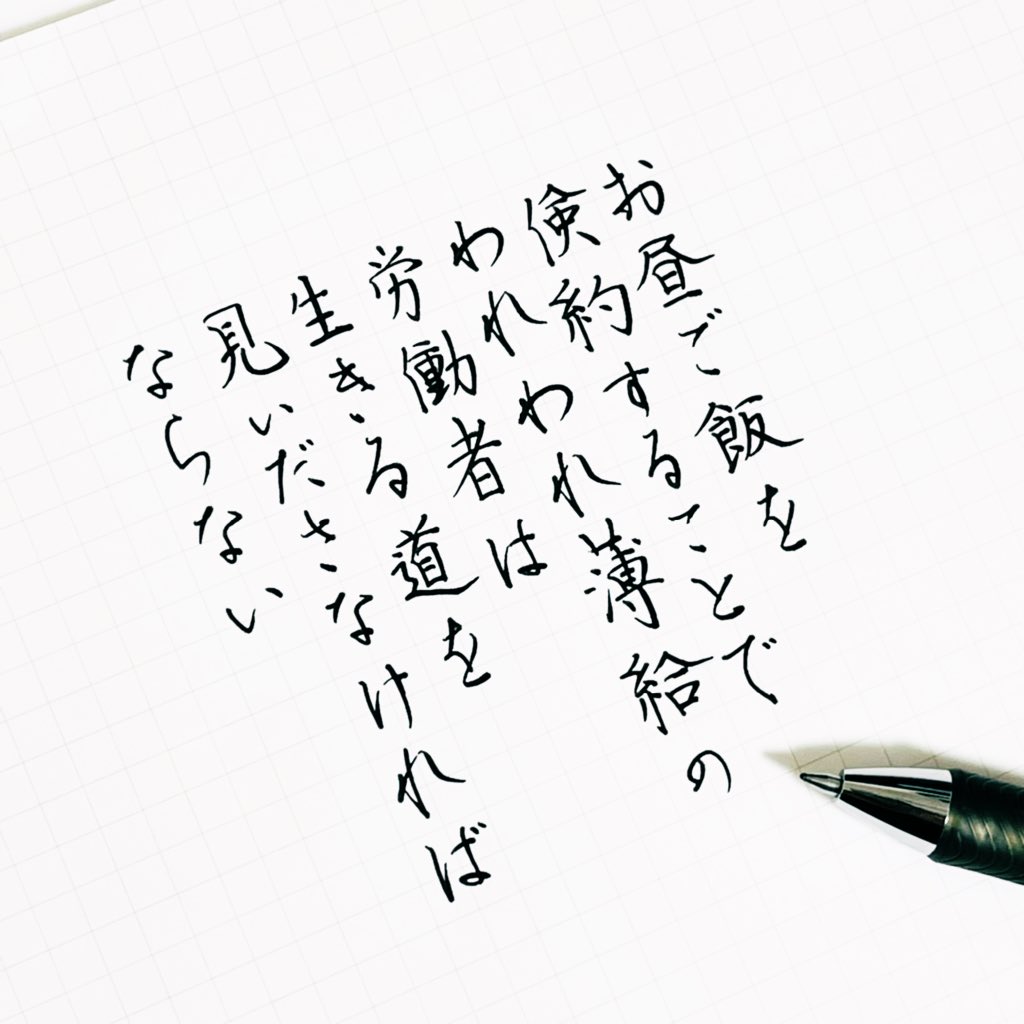 お昼ご飯を
倹約することで
われわれ薄給の
労働者は
生きる道を
見いださなければ
ならない